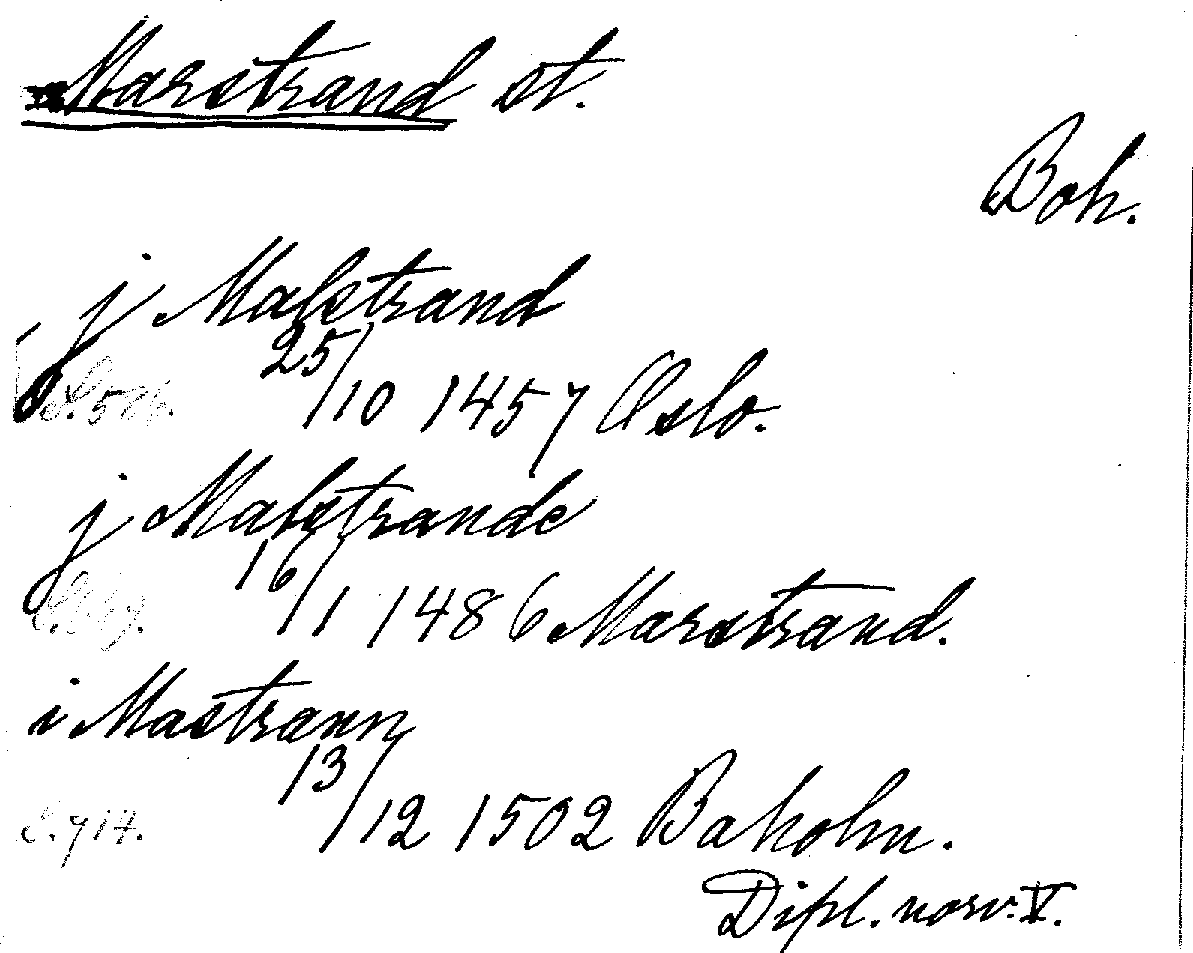 Marstrand st.
Boh.
j Malstrand
25/10 1457 Oslo.
j Malstrande
16/1 1486 Marstrand.
i Mastrann
13/12 1502 Baholm.
S. 714.
Dipl. norv. V.